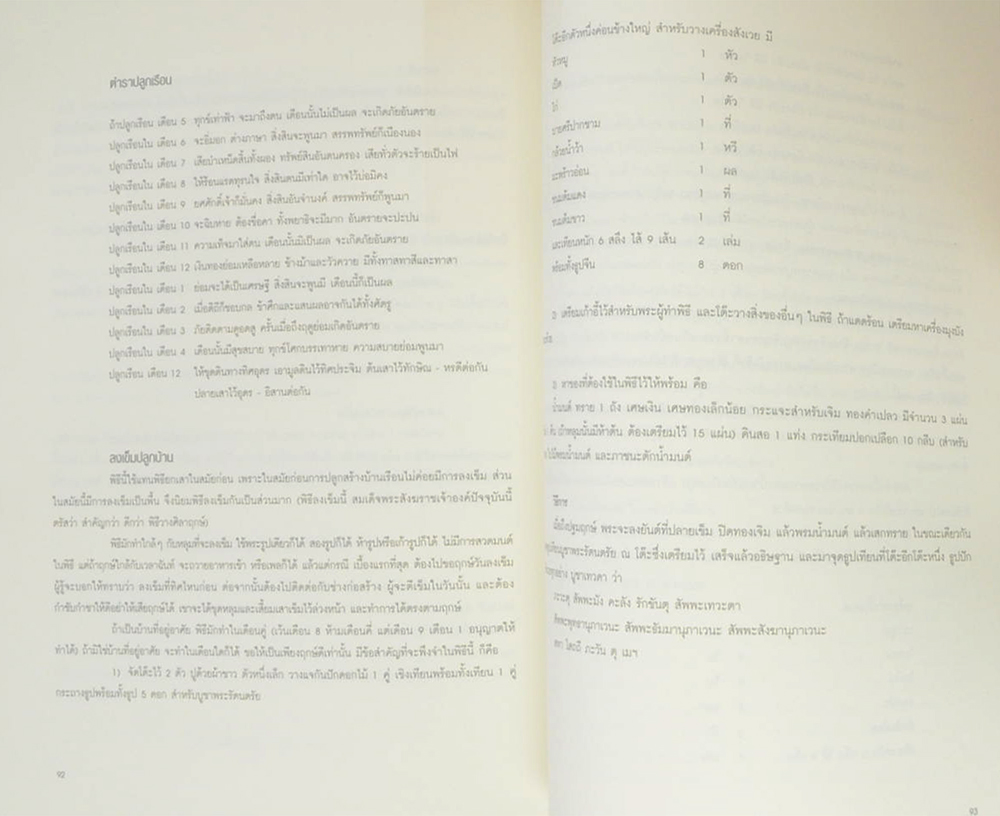 ตำราปลูกเรือน
ถ้าปลูกเรือน เดือน 5 ทุกข์เท่าฟ้า จะมาถึงตน เดือนนั้นไม่เป็นผล จะเกิดภัยอันตราย
ปลูกเรือนใน เดือน 6 จะอิ่มอก ต่างภาษา สิ่งสินจะพูนมา สรรพทรัพย์ก็เนืองนอง
ปลูกเรือนใน เดือน 7 เสียบำเหน็จสิ้นทั้งผอง ทรัพย์สินอันตนครอง เสียทั่วตัวจะร้ายเป็นไฟ
ปลูกเรือนใน เดือน 8 ให้ร้อนแรดทุรนใจ สิ่งสินตนมีเท่าใด อาจไว้บ่อมิคง
ปลูกเรือนใน เดือน 9 ยศศักดิ์เจ้าก็มั่นคง สิ่งสินอันจำนงค์ สรรพทรัพย์ก็พูนมา
ปลูกเรือนใน เดือน 10 จะฉิบหาย ต้องขื่อคา ทั้งพยาธิจะมีมาก อันตรายจะปะปน
ปลูกเรือนใน เดือน 11 ความเท็จมาใส่ตน เดือนนั้นมิเป็นผล จะเกิดภัยอันตราย
ปลูกเรือนใน เดือน 12 เงินทองย่อมเหลือหลาย ช้างม้าและวัวควาย มีทั้งทาสทาสีและทาสา
ปลูกเรือนใน เดือน 1 ย่อมจะได้เป็นเศรษฐี สิ่งสินจะพูนมี เดือนนี้ก็เป็นผล
ปลูกเรือนใน เดือน 2 เมื่อดิถีก็ชอบกล ข้าศึกและแสนผลอาจกันได้ทั้งศัตรู
ปลูกเรือนใน เดือน 3 ภัยติดตามดูอดสู ครั้นเมื่อถึงฤดูย่อมเกิดอันตราย
ปลูกเรือนใน เดือน 4 เดือนนั้นมีสุขสบาย ทุกข์โศกบรรเทาหาย ความสบายย่อมพูนมา
ปลูกเรือน เดือน 12 ให้ขุดดินทางทิศอุดร เอามูลดินไว้ทิศประจิม ต้นเสาไว้ทักษิณ - หรดีต่อกัน
ปลายเสาไว้อุดร - อีสานต่อกัน
ลงเข็มปลูกบ้าน
พิธีนี้ใช้แทนพิธียกเสาในสมัยก่อน เพราะในสมัยก่อนการปลูกสร้างบ้านเรือนไม่ค่อยมีการลงเข็ม ส่วน
ในสมัยนี้มีการลงเข็มเป็นพื้น จึงนิยมพิธีลงเข็มกันเป็นส่วนมาก (พิธีลงเข็มนี้ สมเด็จพระสังฆราชเจ้าองค์ปัจจุบันนี้
ตรัสว่า สำคัญกว่า ดีกว่า พิธีวางศิลาฤกษ์)
พิธีมักทำใกล้ๆ กับหลุมที่จะลงเข็ม ใช้พระรูปเดียวก็ได้ สองรูปก็ได้ ห้ารูปหรือเก้ารูปก็ได้ ไม่มีการสวดมนต์
ในพิธี แต่ถ้าฤกษ์ใกล้กับเวลาฉันท์ จะถวายอาหารเช้า หรือเพลก็ได้ แล้วแต่กรณี เบื้องแรกที่สุด ต้องไปขอฤกษ์วันลงเข็ม
ผู้รู้จะบอกให้ทราบว่า ลงเข็มที่ทิศไหนก่อน ต่อจากนั้นต้องไปติดต่อกับช่างก่อสร้าง ผู้จะตีเข็มในวันนั้น และต้อง
กำชับกำชาให้ดีอย่าให้เสียฤกษ์ได้ เขาจะได้ขุดหลุมและเสี้ยมเสาเข็มไว้ล่วงหน้า และทำการได้ตรงตามฤกษ์
ถ้าเป็นบ้านที่อยู่อาศัย พิธีมักทำในเดือนคู่ (เว้นเดือน 8 ห้ามเดือนคี่ แต่เดือน 9 เดือน 1 อนุญาตให้
ทำได้) ถ้ามิใช่บ้านที่อยู่อาศัย จะทำในเดือนใดก็ได้ ขอให้เป็นเพียงฤกษ์ดีเท่านั้น มีข้อสำคัญที่จะพึงจำในพิธีนี้ ก็คือ
1) จัดโต๊ะไว้ 2 ตัว ปูด้วยผ้าขาว ตัวหนึ่งเล็ก วางแจกันปักดอกไม้ 1 คู่ เชิงเทียนพร้อมทั้งเทียน 1 คู่
กระถางธูปพร้อมทั้งธูป 5 ดอก สำหรับบูชาพระรัตนตรัย
92
โต๊ะอีกตัวหนึ่งค่อนข้างใหญ่ สำหรับวางเครื่องสังเวย มี
หัวหมู 1 หัว
เป็ด 1 ตัว
ไก่ 1 ตัว
บายศรีปากชาม 1 ที่
กล้วยน้ำว้า 1 หวี
มะพร้าวอ่อน 1 ผล
ขนมต้มแดง 1 ที่
ขนมต้มขาว 1 ที่
และเทียนหนัก 6 สลึง ไส้ 9 เส้น 2 เล่ม
พร้อมทั้งธูปจีน 8 ดอก
เตรียมเก้าอี้ไว้สำหรับพระผู้ทำพิธี และโต๊ะวางสิ่งของอื่นๆ ในพิธี ถ้าแดดร้อน เตรียมหาเครื่องมุงบัง
หาของที่ต้องใช้ในพิธีไว้ให้พร้อม คือ
น้ำมนต์ ทราย 1 ถัง เศษเงิน เศษทองเล็กน้อย กระแจะสำหรับเจิม ทองคำเปลว มีจำนวน 3 แผ่น
ถ้าหลุมนั้นมีห้าต้น ต้องเตรียมไว้ 15 แผ่น) ดินสอ 1 แท่ง กระเทียมปอกเปลือก 10 กลีบ (สำหรับ
ไม้พรมน้ำมนต์ และภาชนะตักน้ำมนต์
วิธีการ
เมื่อถึงปฐมฤกษ์ พระจะลงยันต์ที่ปลายเข็ม ปิดทองเจิม แล้วพรมน้ำมนต์ แล้วเสกทราย ในขณะเดียวกัน
บูชาพระรัตนตรัย ณ โต๊ะซึ่งเตรียมไว้ เสร็จแล้วอธิษฐาน และมาจุดธูปเทียนที่โต๊ะอีกโต๊ะหนึ่ง ธูปปัก
ทุกอย่าง บูชาเทวดา ว่า
ภะวะตุ สัพพะมัง คะลัง รักขันตุ สัพพะเทวะดา
สัพพะพุทธานุภาเวนะ สัพพะธัมมานุภาเวนะ สัพพะสังฆานุภาเวนะ
สะทา โสตถี ภะวัน ตุ เมฯ
93